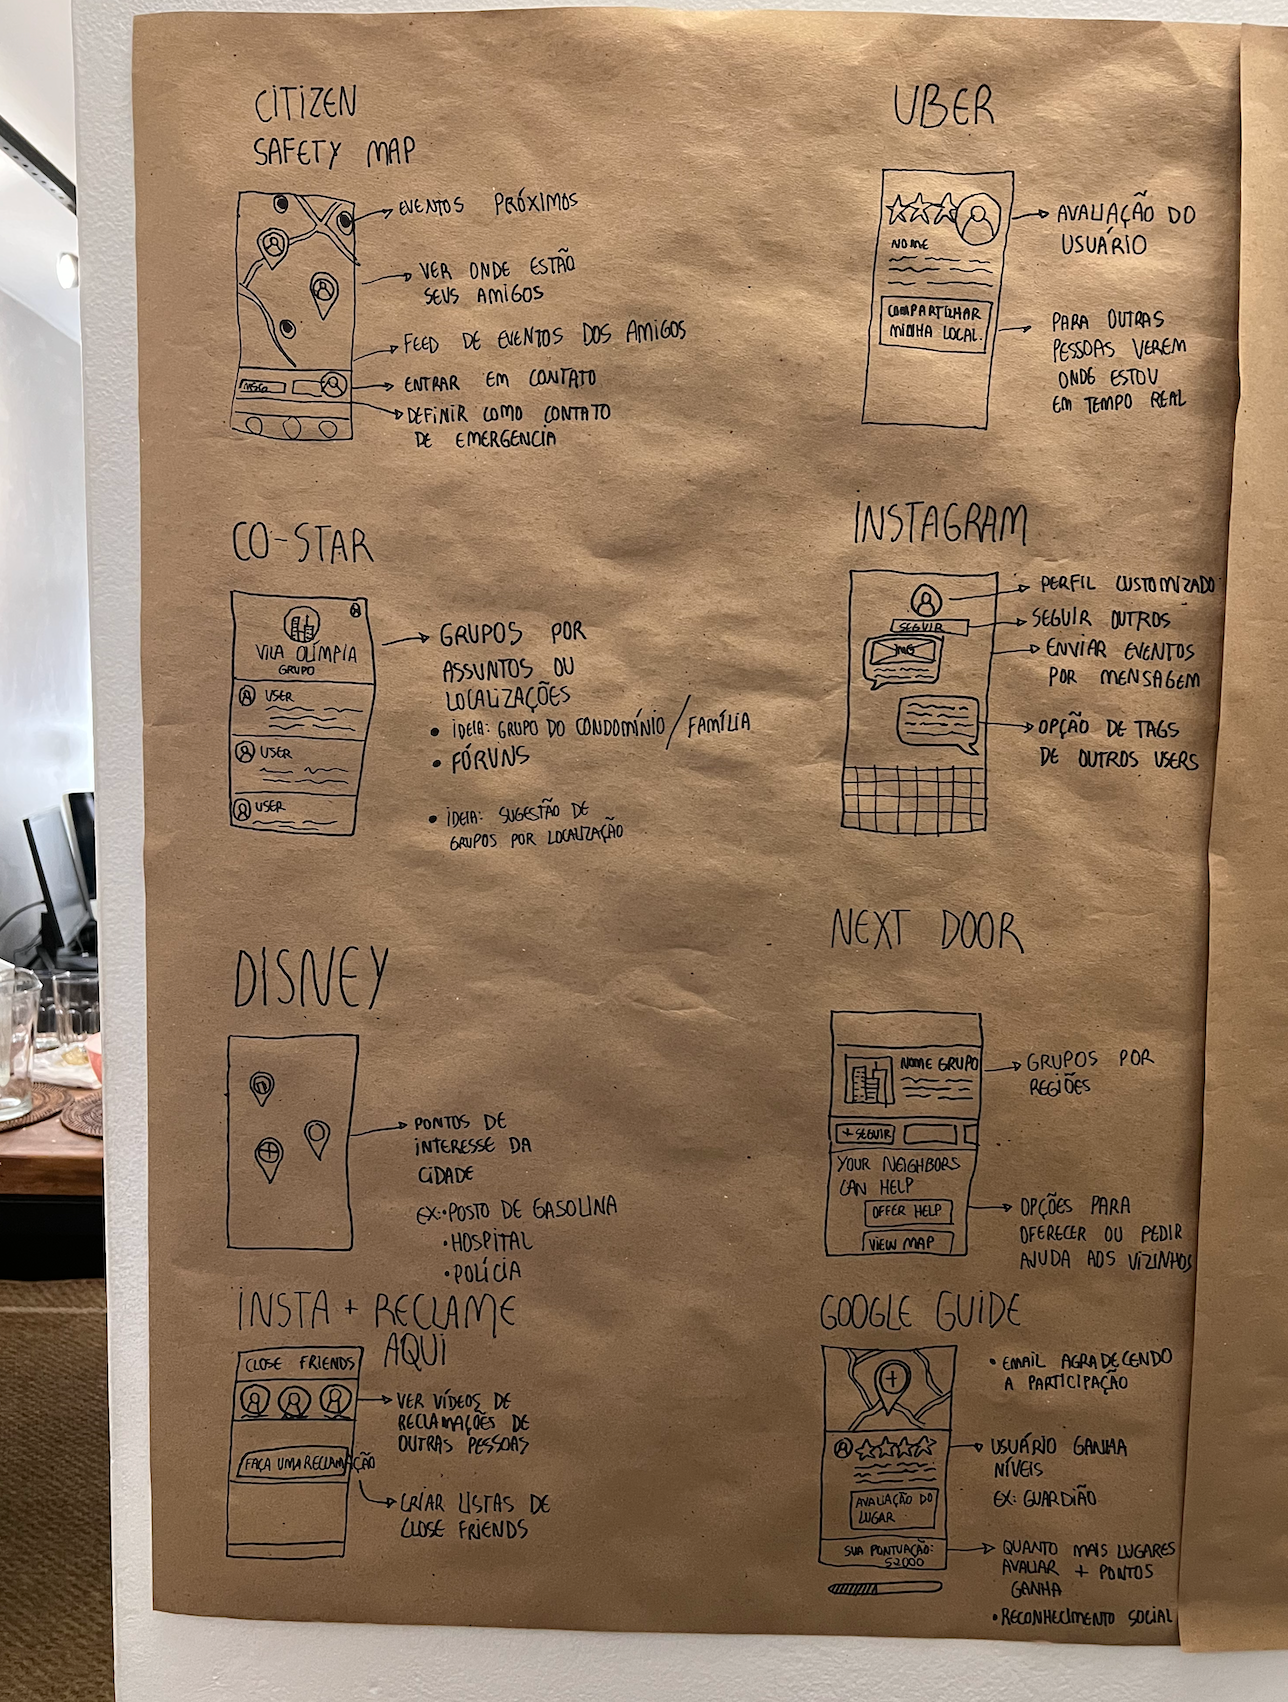 CITIZEN
SAFETY MAP
EVENTOS PRÓXIMOS
VER ONDE ESTÃO
SEUS AMIGOS
FEED DE EVENTOS DOS AMIGOS
MSG
ENTRAR EM CONTATO
DEFINIR COMO CONTATO
DE EMERGENCIA
UBER
NOME
COMPARTILHAR
MINHA LOCAL.
AVALIAÇÃO DO
USUÁRIO
PARA OUTRAS
PESSOAS VEREM
ONDE ESTOU
EM TEMPO REAL
CO-STAR
VILA OLÍMPIA
GRUPO
USER
USER
USER
GRUPOS POR
ASSUNTOS OU
LOCALIZAÇÕES
• IDEIA: GRUPO DO CONDOMÍNIO / FAMÍLIA
• FÓRUNS
• IDEIA: SUGESTÃO DE
GRUPOS POR LOCALIZAÇÃO
INSTAGRAM
SEGUIR
IMG
PERFIL CUSTOMIZADO
SEGUIR OUTROS
ENVIAR EVENTOS
POR MENSAGEM
OPÇÃO DE TAGS
DE OUTROS USERS
DISNEY
PONTOS DE
INTERESSE DA
CIDADE
EX: • POSTO DE GASOLINA
• HOSPITAL
• POLÍCIA
NEXT DOOR
NOME GRUPO
+ SEGUIR
YOUR NEIGHBORS
CAN HELP
OFFER HELP
VIEW MAP
GRUPOS POR
REGIÕES
OPÇÕES PARA
OFERECER OU PEDIR
AJUDA AOS VIZINHOS
INSTA + RECLAME
AQUI
CLOSE FRIENDS
FAÇA UMA RECLAMAÇÃO
VER VÍDEOS DE
RECLAMAÇÕES DE
OUTRAS PESSOAS
CRIAR LISTAS DE
CLOSE FRIENDS
GOOGLE GUIDE
AVALIAÇÃO DO
LUGAR
SUA PONTUAÇÃO:
52000
• EMAIL AGRADECENDO
A PARTICIPAÇÃO
USUÁRIO GANHA
NÍVEIS
EX: GUARDIÃO
QUANTO MAIS LUGARES
AVALIAR + PONTOS
GANHA
• RECONHECIMENTO SOCIAL